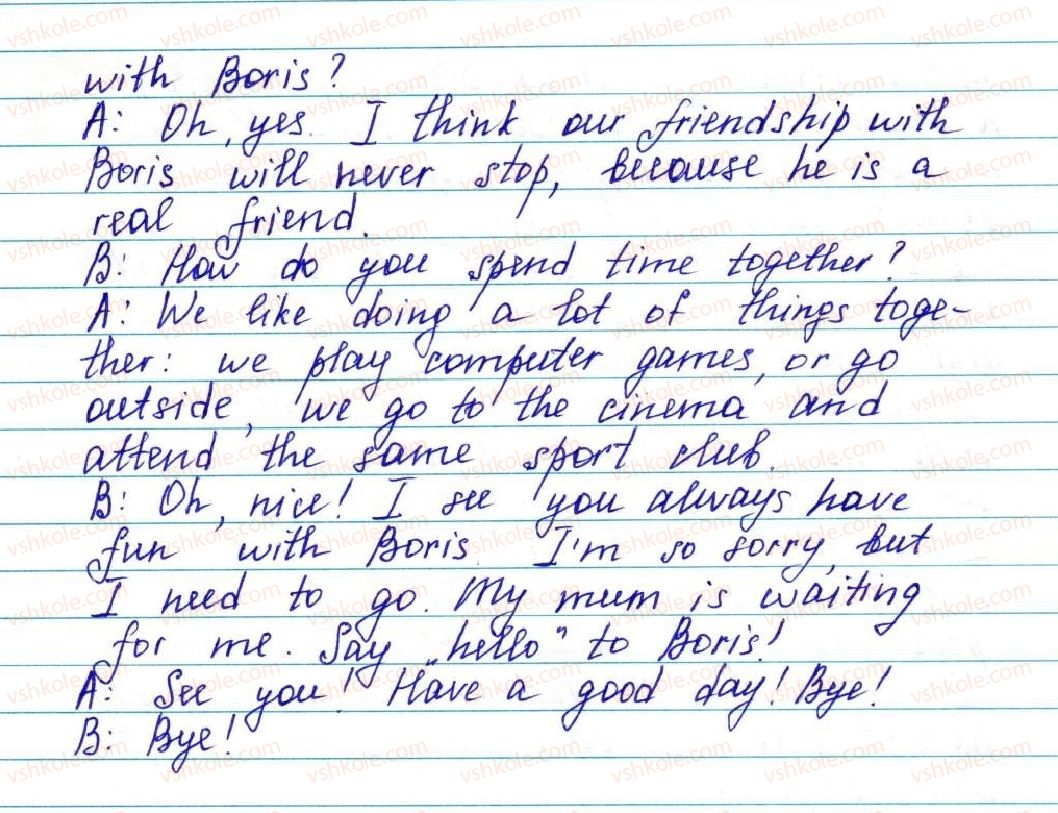 with Boris?
A: Oh, yes. I think our friendship with
Boris will never stop, because he is a
real friend.
B: How do you spend time together?
A: We like doing a lot of things toge-
ther: we play computer games, or go
outside, we go to the cinema and
attend the same sport club.
B: Oh, nice! I see you always have
fun with Boris. I'm so sorry, but
I need to go. My mum is waiting
for me. Say „hello" to Boris!
A: See you! Have a good day! Bye!
B: Bye!